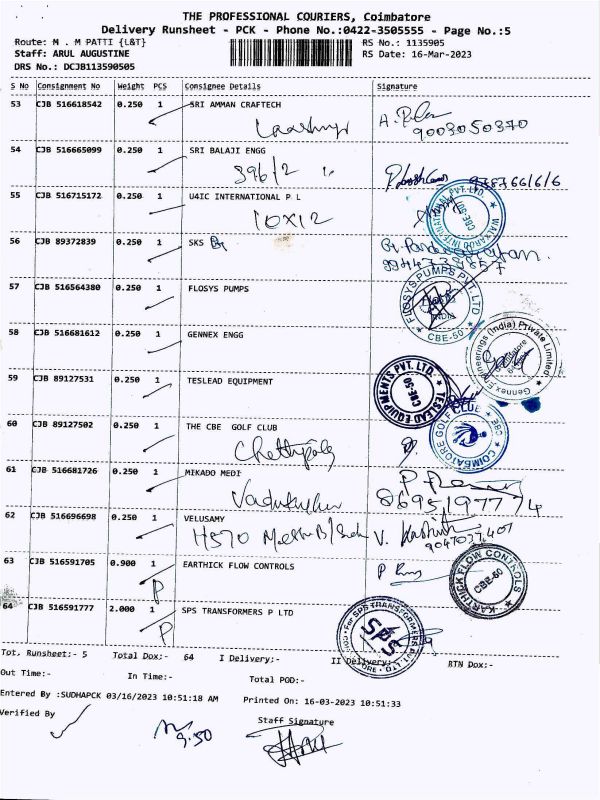 THE PROFESSIONAL COURIERS, Coimbatore
Delivery Runsheet - PCK - Phone No.:0422-3505555 - Page No.:5
Route: M . M PATTI {L&T} RS No.: 1135905
Staff: ARUL AUGUSTINE RS Date: 16-Mar-2023
DRS No.: DCJB113590505
S No Consignment No Weight PCS Consignee Details Signature
53 CJB 516618542 0.250 1 SRI AMMAN CRAFTECH
9003050370
54 CJB 516665099 0.250 1 SRI BALAJI ENGG
396/2
55 CJB 516715172 0.250 1 U4IC INTERNATIONAL P L
10X12
CBE-50
56 CJB 89372839 0.250 1 SKS
57 CJB 516564380 0.250 1 FLOSYS PUMPS
FLOSYS PUMPS PVT. LTD
INDIA
CBE-50
58 CJB 516681612 0.250 1 GENNEX ENGG
Gennex Engineerings (India) Private Limited
59 CJB 89127531 0.250 1 TESLEAD EQUIPMENT
TESLEAD EQUIPMENTS PVT. LTD.
CBE-50
60 CJB 89127502 0.250 1 THE CBE GOLF CLUB
COIMBATORE GOLF CLUB
61 CJB 516681726 0.250 1 MIKADO MEDI
8695197774
62 CJB 516696698 0.250 1 VELUSAMY
H570
9047037401
63 CJB 516591705 0.900 1 EARTHICK FLOW CONTROLS
P
KARTHICK FLOW CONTROLS
CBE-50
64 CJB 516591777 2.000 1 SPS TRANSFORMERS P LTD
P
For SPS TRANSFORMERS PVT.LTD
SPS
Tot, Runsheet:- 5 Total Dox:- 64 I Delivery:- II Delivery:- RTN Dox:-
Out Time:- In Time:- Total POD:-
Entered By :SUDHAPCK 03/16/2023 10:51:18 AM Printed On: 16-03-2023 10:51:33
Verified By Staff Signature
9.50